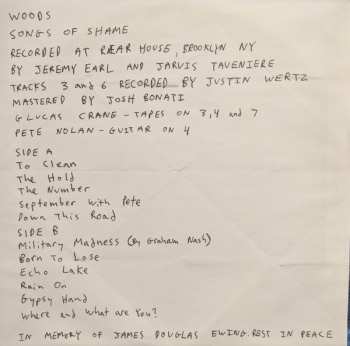 WOODS
SONGS OF SHAME
RECORDED AT REAR HOUSE, BROOKLYN NY
BY JEREMY EARL AND JARVIS TAVENIERE
TRACKS 3 and 6 RECORDED BY JUSTIN WERTZ
MASTERED BY JOSH BONATI
G LUCAS CRANE - TAPES ON 3,4 and 7
PETE NOLAN - GUITAR ON 4
SIDE A
To Clean
The Hold
The Number
September with Pete
Down This Road
SIDE B
Military Madness (By Graham Nash)
Born To Lose
Echo Lake
Rain On
Gypsy Hand
Where and What are You?
IN MEMORY OF JAMES DOUGLAS EWING. REST IN PEACE